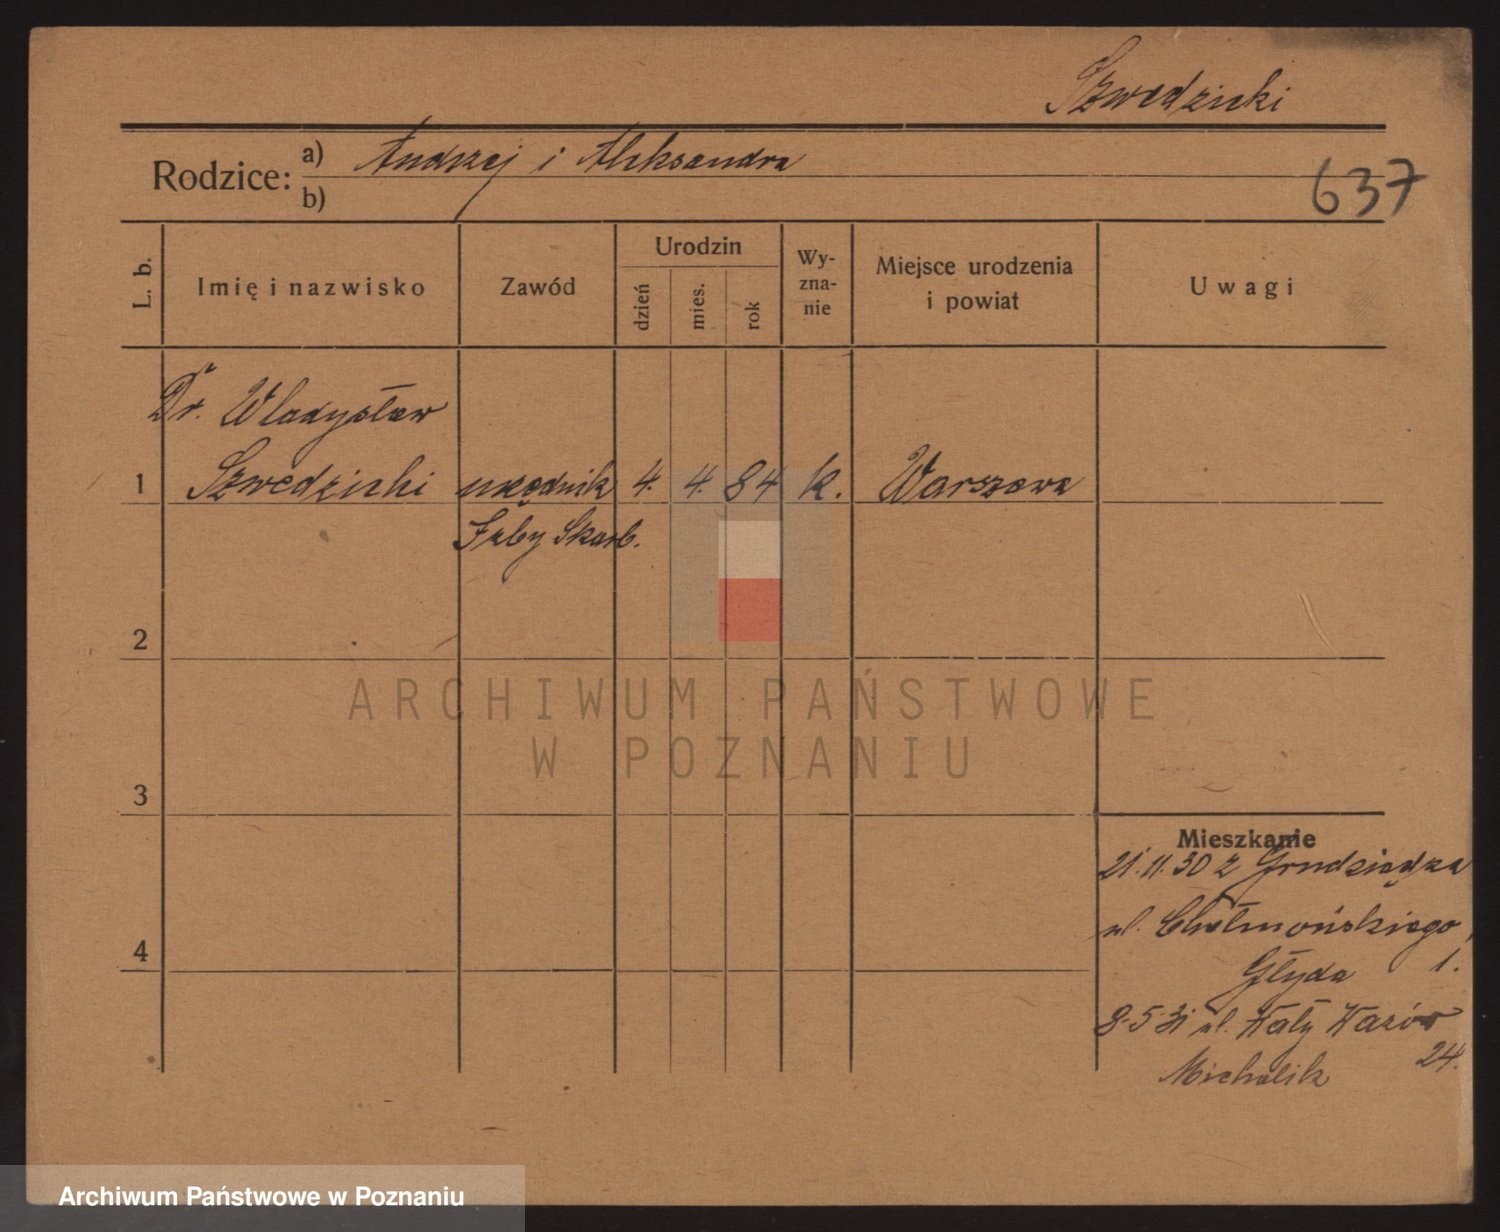 Szwedzicki
Rodzice: a) Andrzej i Aleksandra
b)
637
L. b.
Imię i nazwisko
Zawód
Urodzin
dzień
mies.
rok
Wy-
zna-
nie
Miejsce urodzenia
i powiat
Uwagi
Dr. Władysław
1 Szwedzicki urzędnik 4. 4. 84 k. Warszawa
Izby Skarb.
2
ARCHIWUM PAŃSTWOWE
W POZNANIU
3
Mieszkanie
21.11.30 z Grudziądza
ul. Chełmońskiego,
4
Głyda 1.
8.5.31 ul. Wały Wazów
24.
Michalik
Archiwum Państwowe w Poznaniu